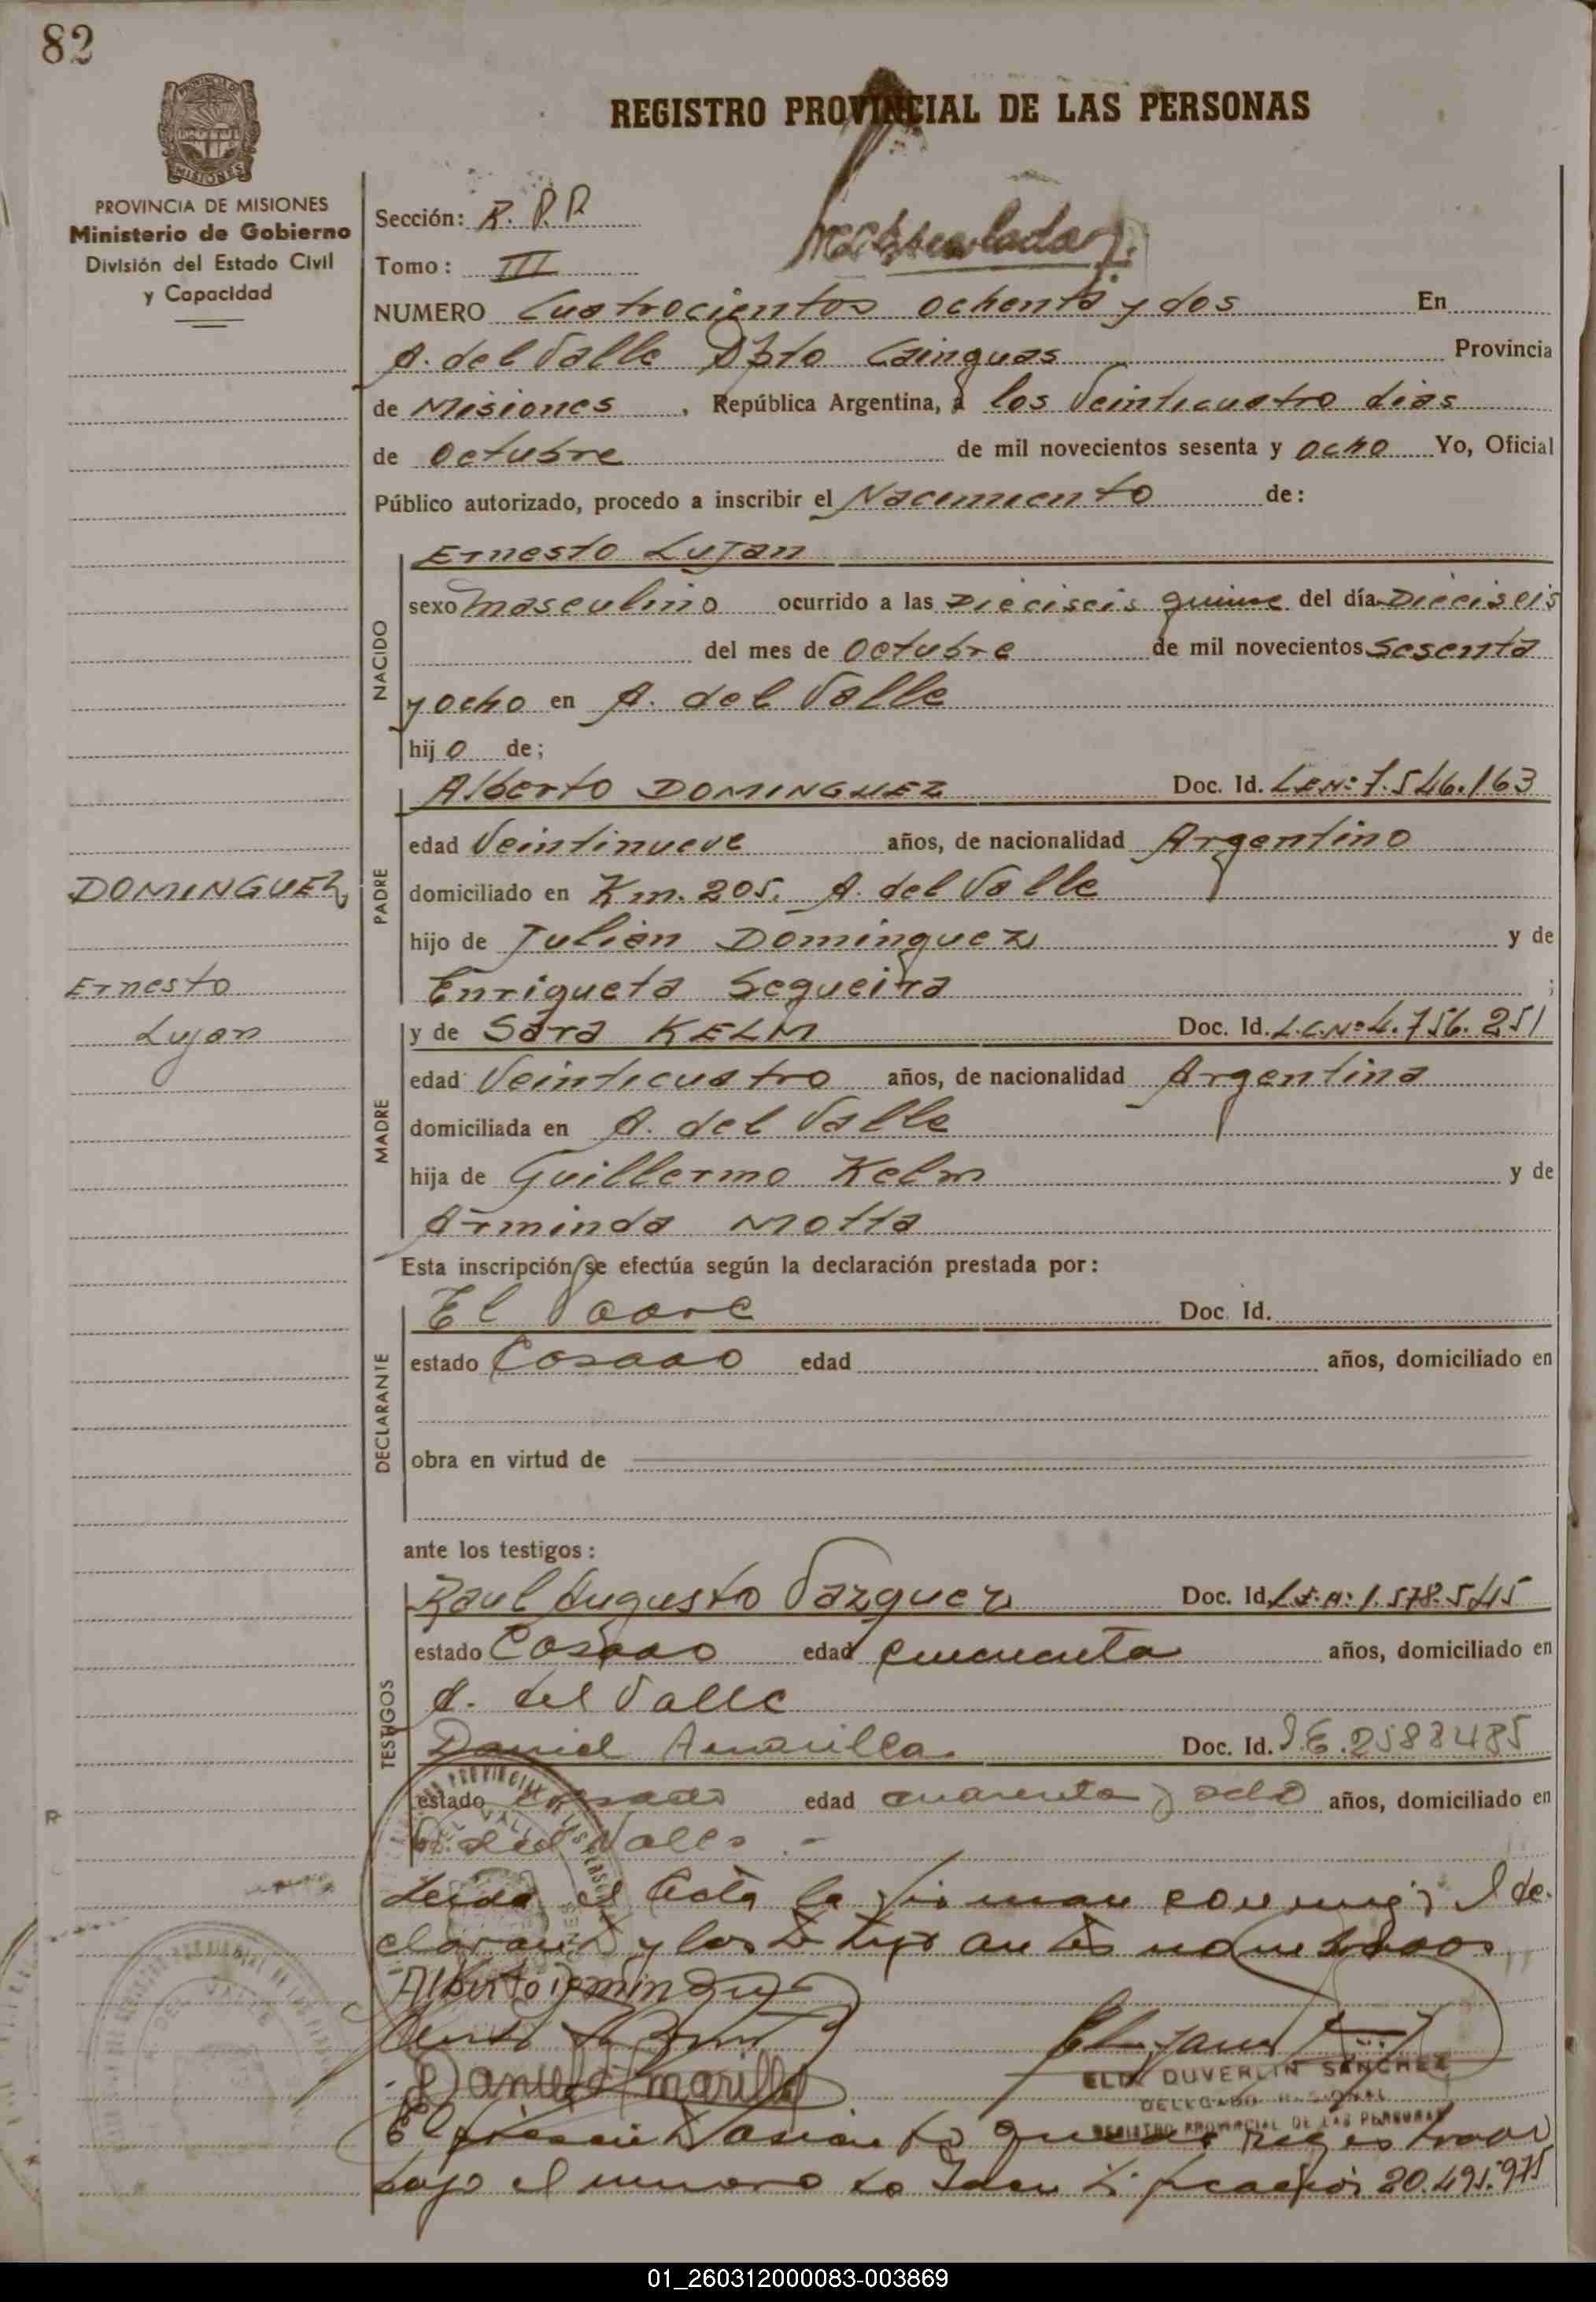 82
REGISTRO PROVINCIAL DE LAS PERSONAS
PROVINCIA DE MISIONES
Ministerio de Gobierno
División del Estado Civil
y Capacidad
Sección: R. P. P
Tomo: III
NUMERO Cuatrocientos ochenta y dos En
A. del Valle Dpto Cainguas Provincia
de Misiones, República Argentina, a los Veinticuatro dias
de Octubre de mil novecientos sesenta y ocho Yo, Oficial
Público autorizado, procedo a inscribir el Nacimiento de:
NACIDO
Ernesto Lujan
sexo masculino ocurrido a las Dieciseis quince del día Dieciseis
del mes de Octubre de mil novecientos Sesenta
y ocho en A. del Valle
hijo de;
PADRE
Alberto DOMINGUEZ Doc. Id. L.E.Nº 7.546.163
edad Veintinueve años, de nacionalidad Argentino
DOMINGUEZ
domiciliado en Km. 205. A. del Valle
hijo de Julian Dominguez y de
Ernesto
Enriqueta Sequeira ;
Lujan
MADRE
y de Sara KELM Doc. Id. L.C.Nº 4.756.251
edad Veinticuatro años, de nacionalidad Argentina
domiciliada en A. del Valle
hija de Guillermo Kelm y de
Arminda Motta
Esta inscripción se efectúa según la declaración prestada por:
DECLARANTE
El Padre Doc. Id.
estado Casado edad años, domiciliado en
obra en virtud de
ante los testigos:
TESTIGOS
Raul Augusto Vazquez Doc. Id. 1.578.545
estado Casado edad cincuenta años, domiciliado en
A. del Valle
Daniel Amarilla Doc. Id. 2588485
estado casado edad cuarenta y ocho años, domiciliado en
A. del Valle.-
Leida el Acta la firman conmigo el de-
clarante y los testigos antes nombrados
Alberto Dominguez
Daniel Amarilla
ELIX DUVERLIN SANCHEZ
DELEGADO REGIONAL
REGISTRO PROVINCIAL DE LAS PERSONAS
El presente asiento queda registrado
bajo el numero de Identificación 20.491.971
01_260312000083-003869